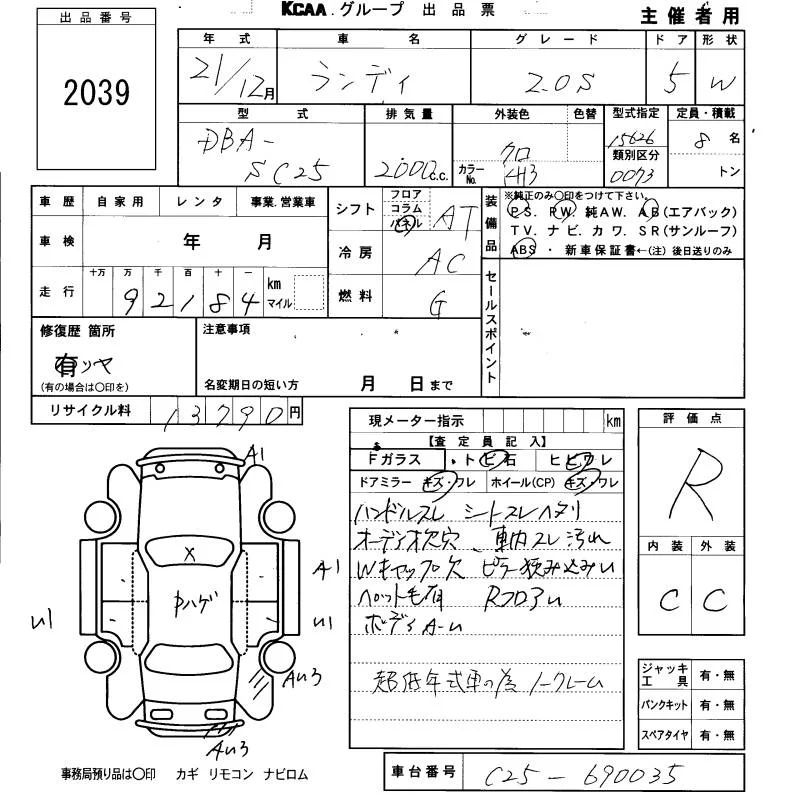 KCAA.グループ 出品票
主催者用
出品番号
2039
年式 車名 グレード ドア 形状
21/12月 ランディ 2.0S 5 W
型式 排気量 外装色 色替 型式指定 定員・積載
DBA-
SC25
2000c.c.
クロ
カラーNo. 4H3
15626
類別区分
0073
8名
トン
車歴 自家用 レンタ 事業.営業車
車検 年 月
走行 十万 万 千 百 十 一 km マイル
9 2 1 8 4
シフト フロア コラム パネル AT
冷房 AC
燃料 G
装備品
※純正のみ○印をつけて下さい。
PS. RW. 純AW. AB(エアバック)
TV. ナビ. カワ. SR(サンルーフ)
ABS ・ 新車保証書←(注) 後日送りのみ
セールスポイント
修復歴 箇所
有リヤ
(有の場合は○印を)
注意事項
名変期日の短い方 月 日まで
リサイクル料 13790円
現メーター指示 km
【査定員記入】
Fガラス ・ トビ石 ヒビワレ
ドアミラー キズ・ワレ ホイール(CP) キズ・ワレ
ハンドルスレ シートスレヘタリ
オーディオ欠穴、車内スレ汚れ
Wキャップ欠 ピラー挟み込みU
ペット毛有 RフロアU
ボディA-U
超低年式車の為ノークレーム
評価点
R
内装 外装
C C
ジャッキ工具 有・無
パンクキット 有・無
スペアタイヤ 有・無
A1
X
A1
中ハゲ
U1
U1
AU3
AU3
事務局預り品は○印 カギ リモコン ナビロム
車台番号 C25-690035